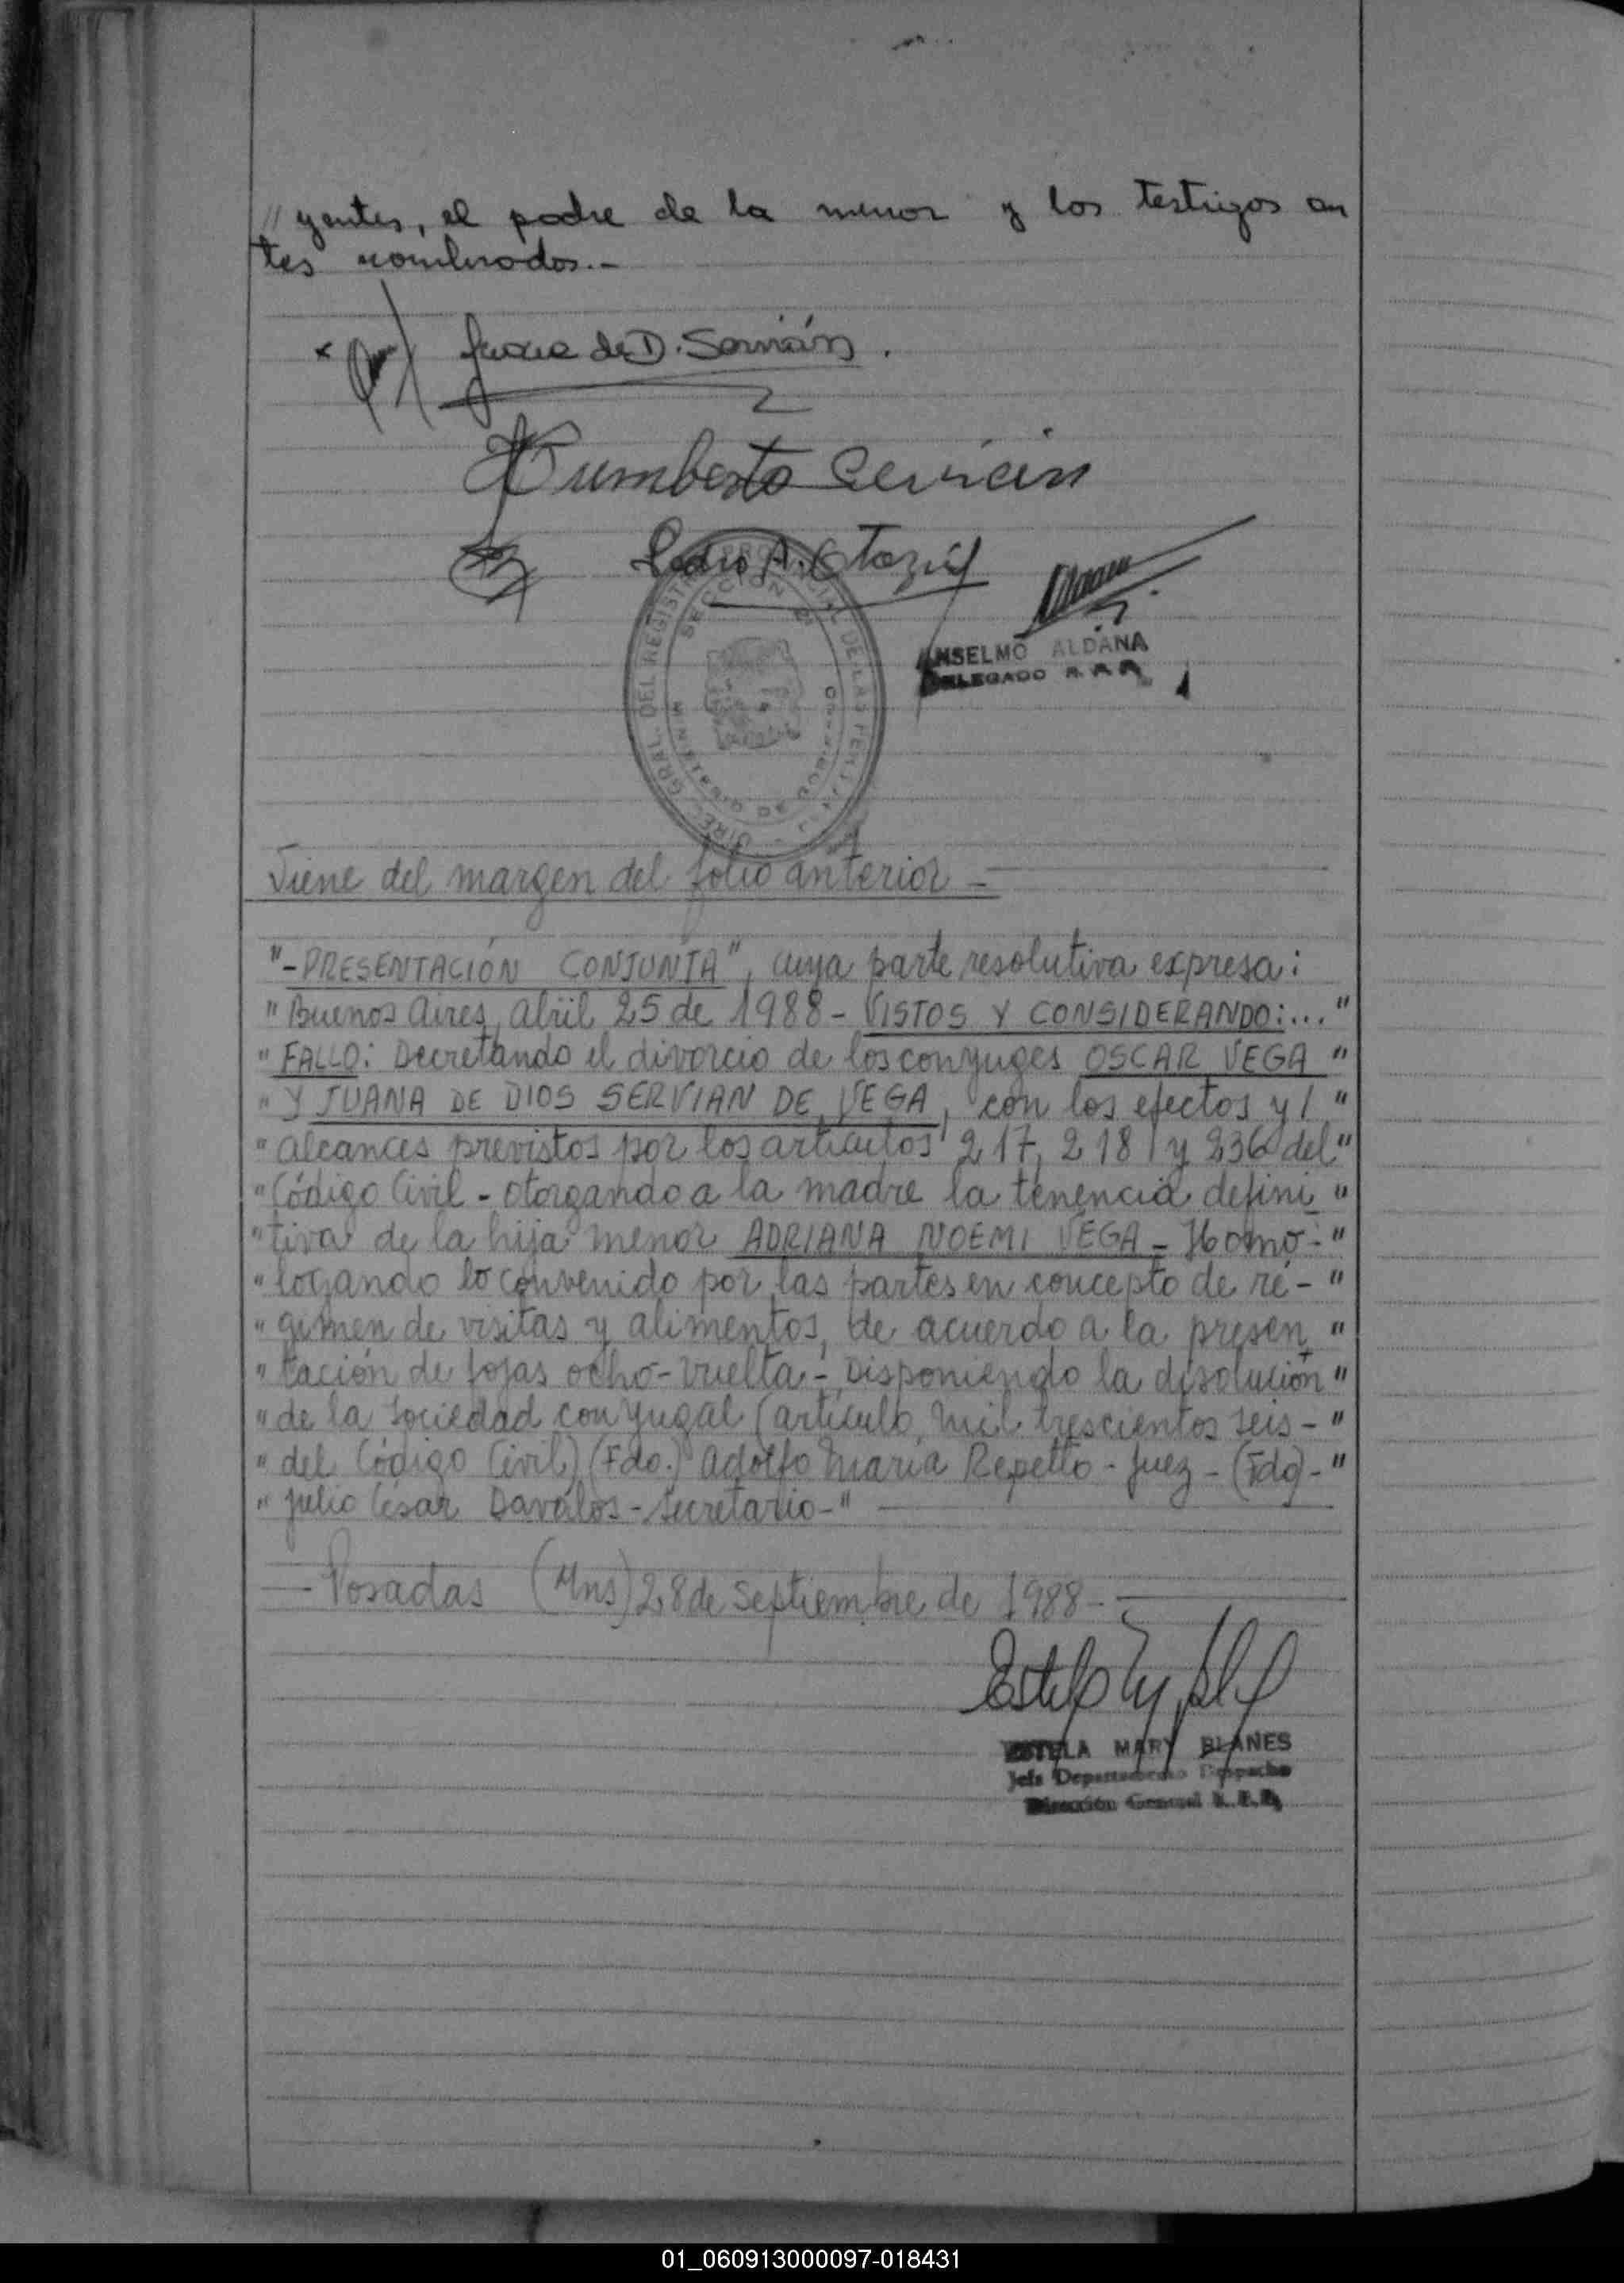 // yentes, el padre de la menor y los testigos an
tes nombrados.-
x Juana de D. Servián.
Humberto Servian
Pedro A. Otazú
DIREC. GRAL. DEL REGISTRO PROVINCIAL DE LAS PERSONAS
SECCION
ANSELMO ALDANA
DELEGADO
Viene del margen del folio anterior -
"-PRESENTACIÓN CONJUNTA", cuya parte resolutiva expresa:
"Buenos Aires, Abril 25 de 1988 - VISTOS Y CONSIDERANDO:..."
"FALLO: Decretando el divorcio de los conyuges OSCAR VEGA "
"Y JUANA DE DIOS SERVIAN DE VEGA, con los efectos y/ "
"alcances previstos por los artículos 217, 218 y 236 del"
"Código Civil - otorgando a la madre la tenencia defini "
"tiva de la hija menor ADRIANA NOEMI VEGA - Homo-"
"logando lo convenido por las partes en concepto de ré- "
"gimen de visitas y alimentos, de acuerdo a la presen "
"tación de fojas ocho-vuelta - Disponiendo la disolución "
"de la Sociedad conyugal (artículo mil trescientos seis - "
"del Código Civil) (Fdo.) Adolfo María Repetto - Juez - (Fdo)-"
"Julio César Davalos - Secretario-"
- Posadas (Mns) 28 de Septiembre de 1988 -
ESTELA MARY BLANES
Jefe Departamento Despacho
Dirección General R. P. P.
01_060913000097-018431